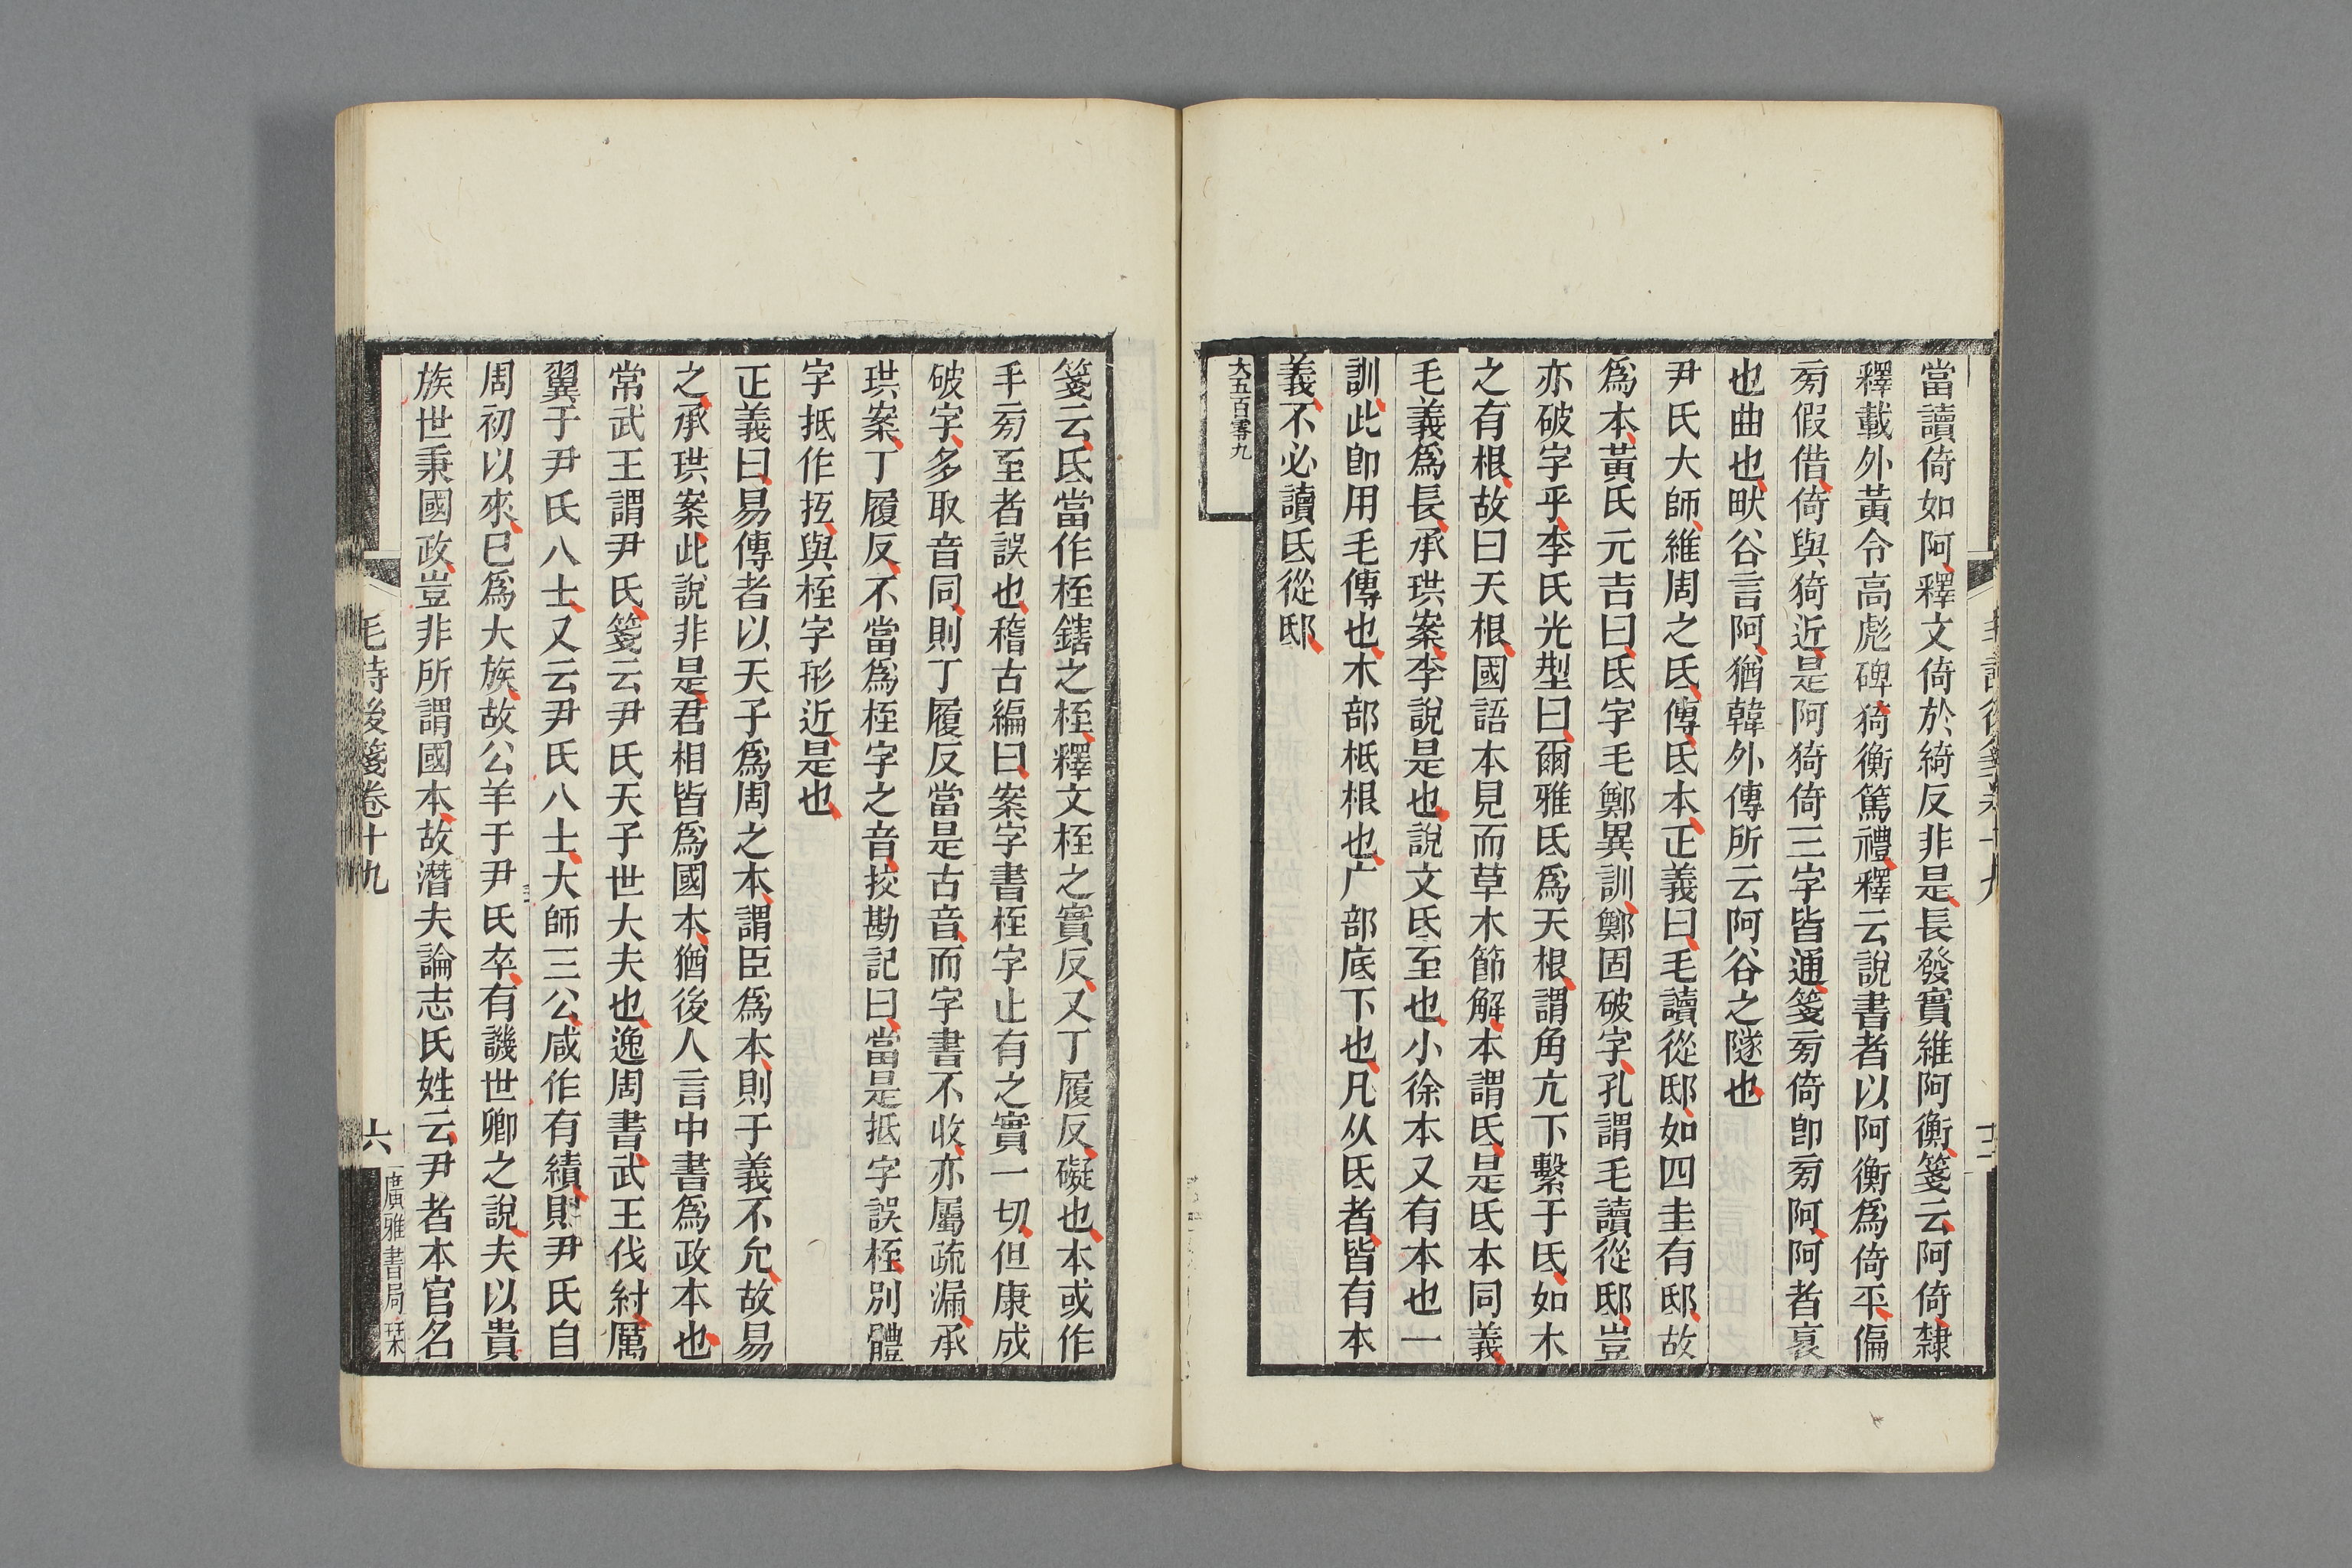 當讀倚如阿釋文倚於綺反非是長發實維阿衡箋云阿倚隸
釋載外黃令高彪碑猗衡篤禮釋云說書者以阿衡爲倚平偏
㫄假借倚與猗近是阿猗倚三字皆通箋㫄倚卽㫄阿阿者裒
也曲也畎谷言阿猶韓外傳所云阿谷之隧也
尹氏大師維周之氐傳氐本正義曰毛讀從邸如四圭有邸故
爲本黃氏元吉曰氐字毛鄭異訓鄭固破字孔謂毛讀從邸豈
亦破字乎李氏光型曰爾雅氐爲天根謂角亢下繫于氐如木
之有根故曰天根國語本見而草木節解本謂氐是氐本同義
毛義爲長承珙案李說是也說文氐至也小徐本又有本也一
訓此卽用毛傳也木部柢根也广部底下也凡从氐者皆有本
義不必讀氐從邸
大五百零九
箋云氐當作桎鎋之桎釋文桎之實反又丁履反礙也本或作
手㫄至者誤也稽古編曰案字書桎字止有之實一切但康成
破字多取音同則丁履反當是古音而字書不收亦屬疏漏承
珙案丁履反不當爲桎字之音挍勘記曰當是抵字誤桎別體
字抵作㧗與桎字形近是也
正義曰易傳者以天子爲周之本謂臣爲本則于義不允故易
之承珙案此說非是君相皆爲國本猶後人言中書爲政本也
常武王謂尹氏箋云尹氏天子世大夫也逸周書武王伐紂厲
翼于尹氏八士又云尹氏八士大師三公咸作有績則尹氏自
周初以來已爲大族故公羊于尹氏卒有譏世卿之說夫以貴
族世秉國政豈非所謂國本故潛夫論志氏姓云尹者本官名
毛詩後箋卷十九
六
廣雅書局栞